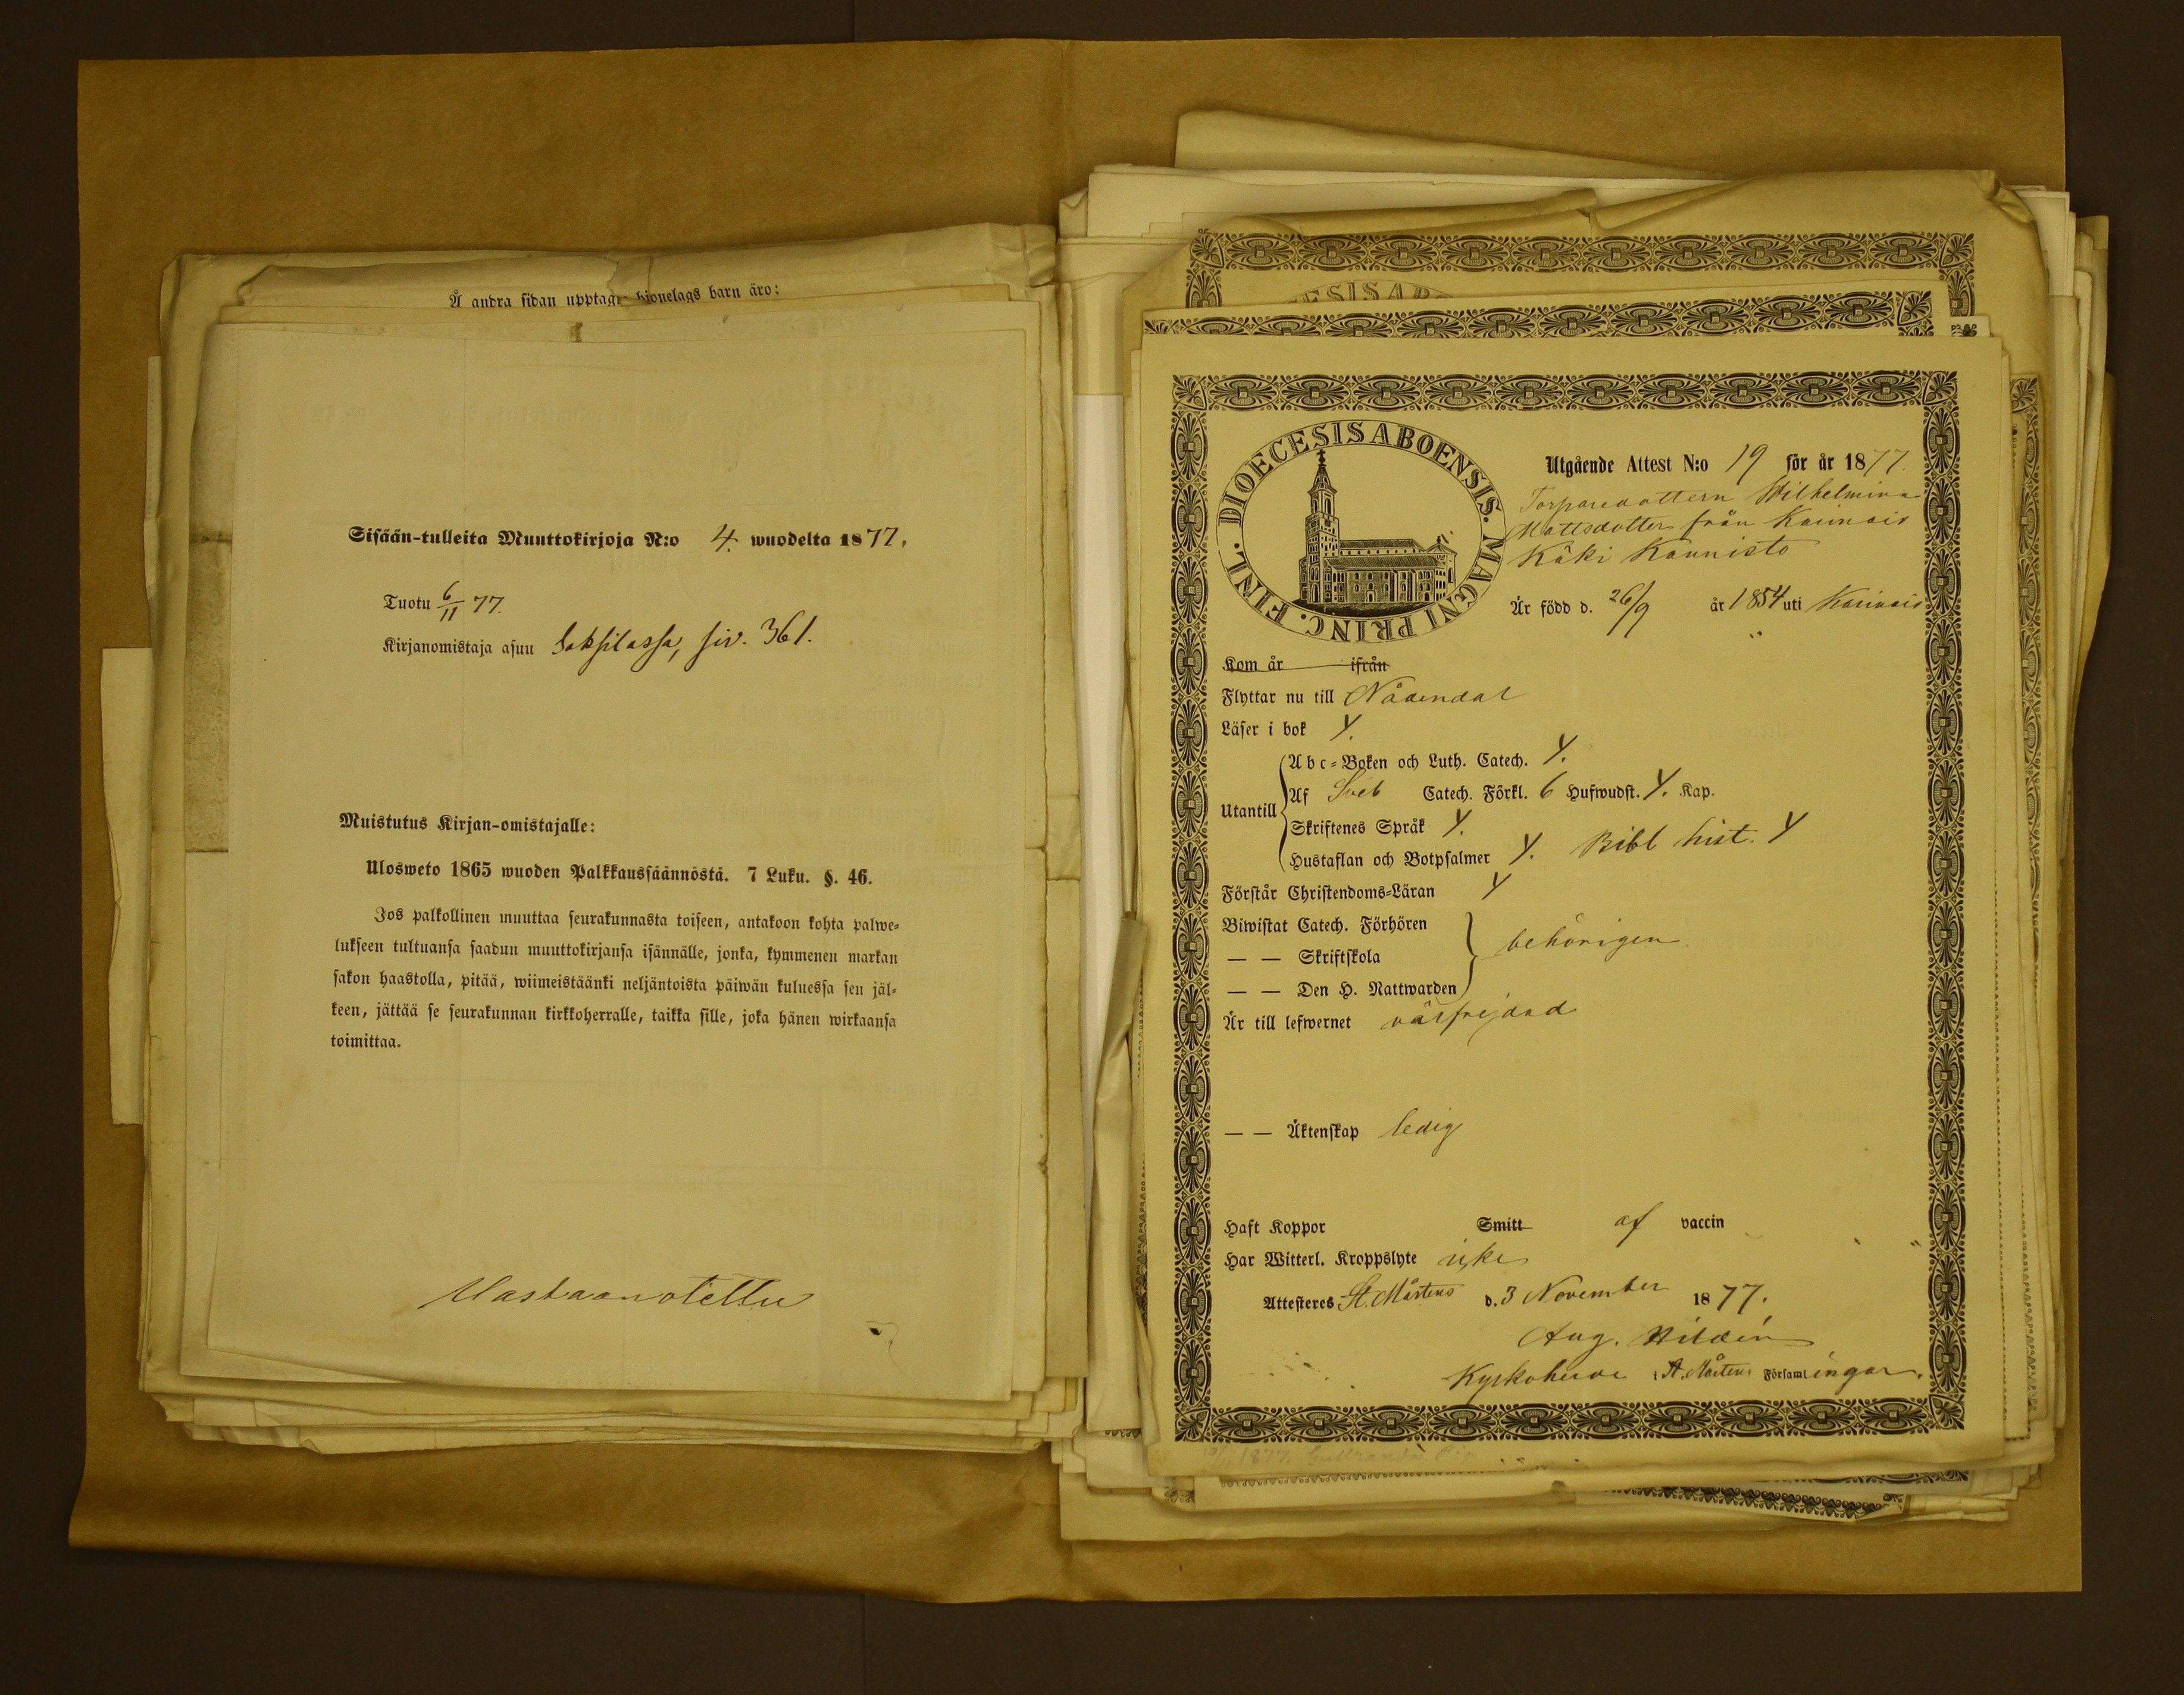 Å andra sidan upptagne hionelags barn äro:
Sisään-tulleita Muuttokirjoja N:o 4. wuodelta 1877.
Tuotu 6/11 77.
Kirjanomistaja asuu Saksilassa, siv. 361.
Muistutus Kirjan-omistajalle:
Ulosweto 1865 wuoden Palkkaussäännöstä. 7 Luku. §. 46.
Jos palkollinen muuttaa seurakunnasta toiseen, antakoon kohta palwe-
lukseen tultuansa saadun muuttokirjansa isännälle, jonka, kymmenen markan
sakon haastolla, pitää, wiimeistäänki neljäntoista päiwän kuluessa sen jäl-
keen, jättää se seurakunnan kirkkoherralle, taikka sille, joka hänen wirkaansa
toimittaa.
Vastaanotettu
DIOECESIS ABOENSIS. MAGNI PRINC. FINL.
Utgående Attest N:o 19 för år 1877.
Torparedottern Wilhelmina
Mattsdotter från Karinais
Käki Kannisto
Är född d. 26/9 år 1854 uti Karinais
Kom år ifrån
Flyttar nu till Nådendal
Läser i bok Y.
Utantill
Abc-Boken och Luth. Catech. Y.
Af Sveb Catech. Förkl. 6 Hufwudst. Y. Kap.
Skriftenes Språk Y.
Hustaflan och Botpsalmer Y. Bibl hist. Y
Förstår Christendoms-Läran Y
Biwistat Catech. Förhören
— — Skriftskola behörigen
— — Den H. Nattwarden
Är till lefwernet välfrejdad
— — Äktenskap ledig
Haft Koppor Smitt af vaccin
Har Witterl. Kroppslyte icke
Attesteres St. Mårtens d. 3 November 1877.
Aug. Hildén
Kyrkoherde i St. Mårtens Församlingar.